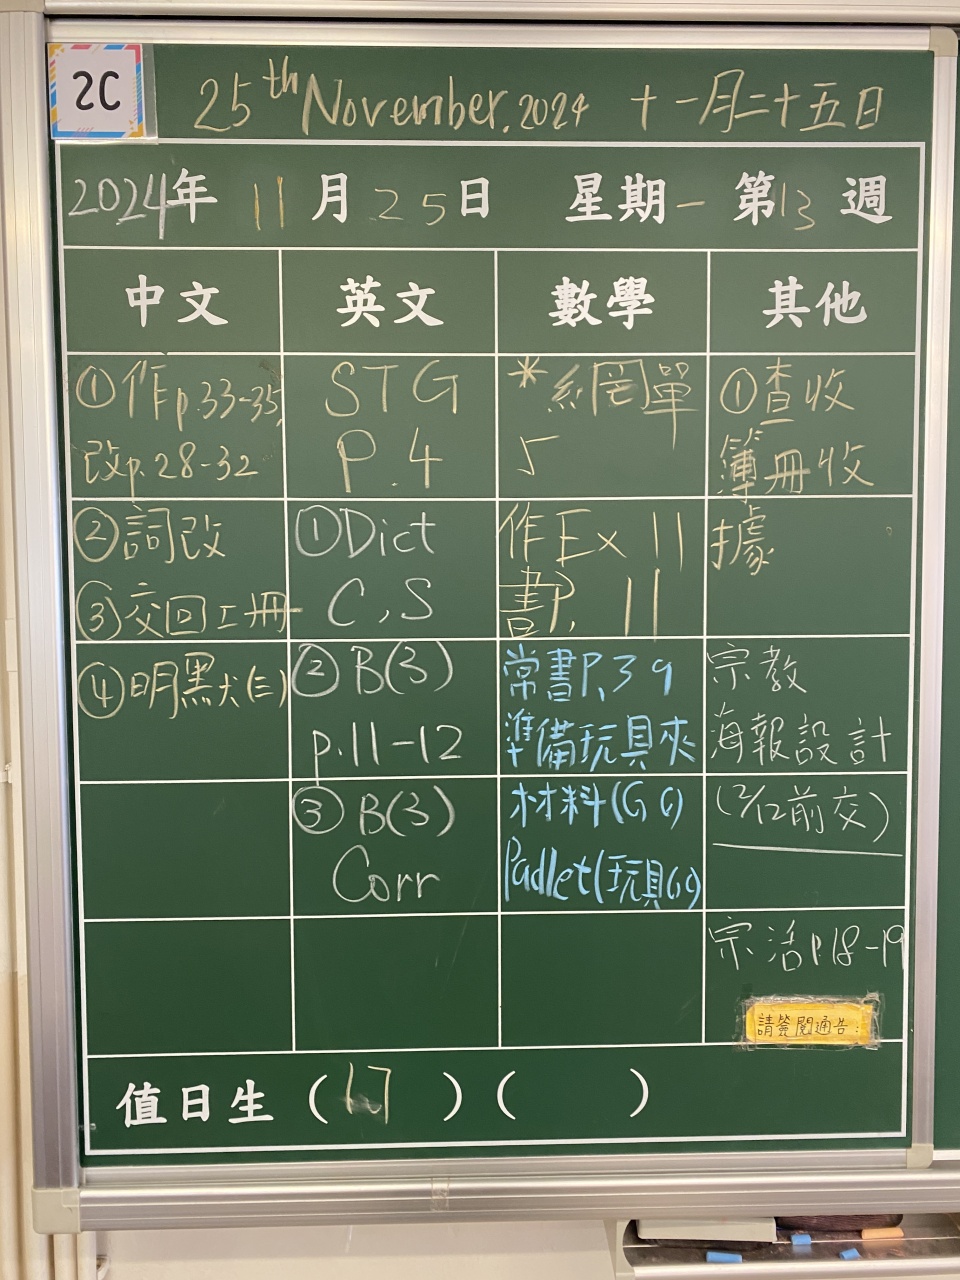 2C
25th November. 2024 十一月二十五日
2024年 11月 25日 星期一 第13週
中文 英文 數學 其他
①作p.33-35,
改p.28-32
②詞改
③交回工冊
④明默犬(三)
STG
P.4
①Dict
C,S
②B(3)
p.11-12
③B(3)
Corr
*網單
5
作Ex 11
書P.11
常書P.39
準備玩具夾
材料(GG)
Padlet(玩具GG)
①查收
簿冊收
據
宗教
海報設計
(2/12前交)
宗活p.18-19
請簽閱通告:
值日生(17)( )